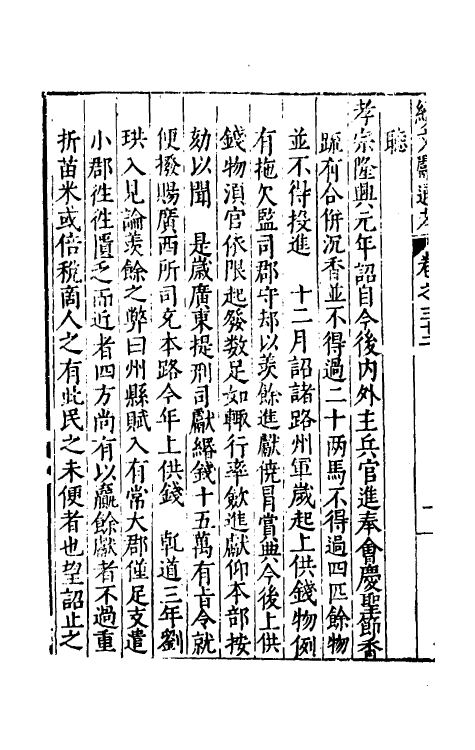 續文獻通考 卷之三十二
聽
孝宗隆興元年詔自今後内外主兵官進奉會慶聖節香
䟽有合併沉香並不得過二十两馬不得過四匹餘物
並不得投進　十二月詔諸路州軍嵗起上供錢物例
有拖欠監司郡守却以羨餘進獻僥冐賞典今後上供
錢物湏官依限起發数足如輙行率歛進獻仰本部按
劾以聞　是嵗廣東提刑司獻緡錢十五萬有旨令就
便撥賜廣西所司充本路今年上供錢　乾道三年劉
珙入見論羨餘之弊曰州縣賦入有常大郡僅足支遣
小郡徃徃匱乏而近者四方尚有以羸餘獻者不過重
折苗米或倍稅商人之有此民之未便者也望詔止之